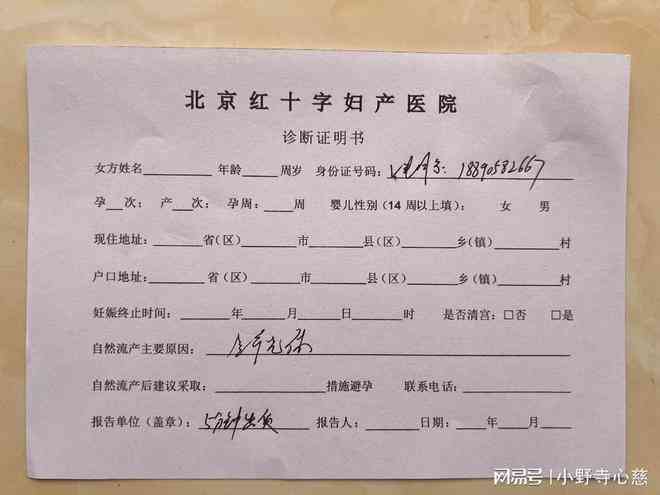 北京红十字妇产医院
诊断证明书
女方姓名________ 年龄____周岁 身份证号码：18890582667
孕__次； 产__次； 孕周：____周 婴儿性别（14 周以上填）： 女 男
现住地址：______省（区）______市______县（区）______乡（镇）______村
户口地址：______省（区）______市______县（区）______乡（镇）______村
妊娠终止时间：______年______月______日______时 是否清宫：□否 □是
自然流产主要原因：
自然流产后建议采取：____________措施避孕 联系电话：____________
报告单位（盖章）：5分钟出货 报告人：______日期：____年____月____
网易号 | 小野寺心慈